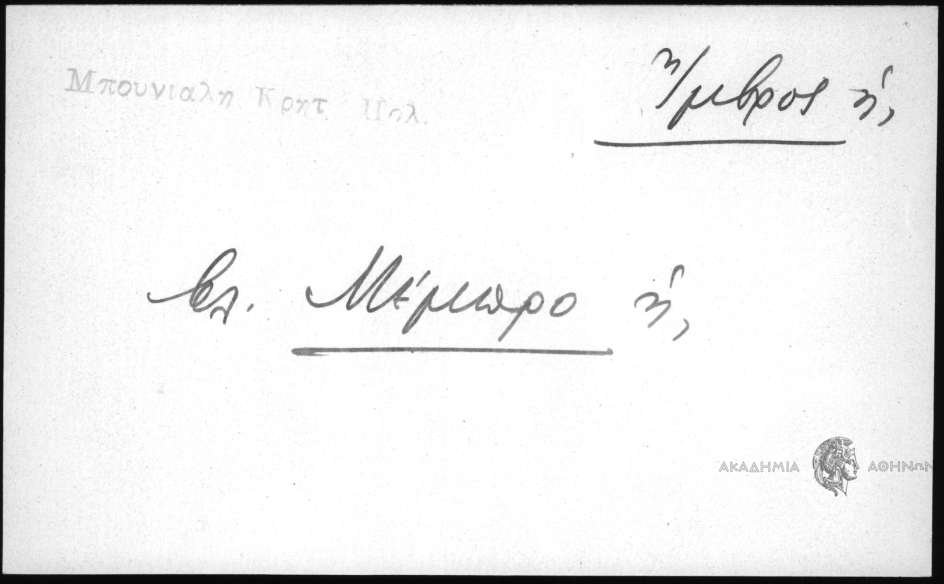 Μπουνιαλη Κρητ. Πολ.
Ἴμβρος ἡ,
βλ. Μέμπρο ἡ,
ΑΚΑΔΗΜΙΑ ΑΘΗΝΩΝ